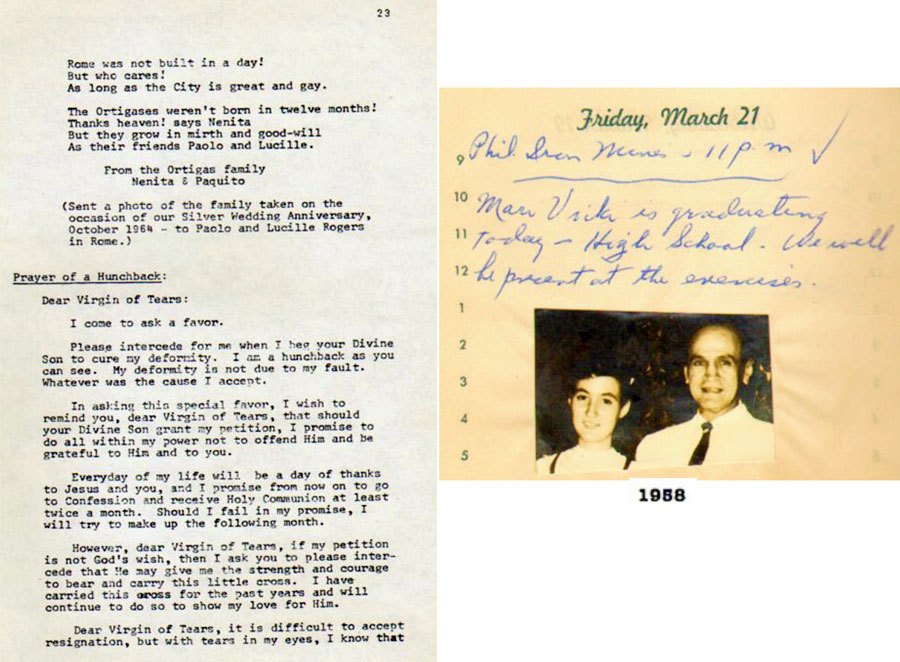 23
Rome was not built in a day!
But who cares!
As long as the City is great and gay.
The Ortigases weren't born in twelve months!
Thanks heaven! says Nenita
But they grow in mirth and good-will
As their friends Paolo and Lucille.
From the Ortigas family
Nenita & Paquito
(Sent a photo of the family taken on the
occasion of our Silver Wedding Anniversary,
October 1964 - to Paolo and Lucille Rogers
in Rome.)
Prayer of a Hunchback:
Dear Virgin of Tears:
I come to ask a favor.
Please intercede for me when I beg your Divine
Son to cure my deformity. I am a hunchback as you
can see. My deformity is not due to my fault.
Whatever was the cause I accept.
In asking this special favor, I wish to
remind you, dear Virgin of Tears, that should
your Divine Son grant my petition, I promise to
do all within my power not to offend Him and be
grateful to Him and to you.
Everyday of my life will be a day of thanks
to Jesus and you, and I promise from now on to go
to Confession and receive Holy Communion at least
twice a month. Should I fail in my promise, I
will try to make up the following month.
However, dear Virgin of Tears, if my petition
is not God's wish, then I ask you to please inter-
cede that He may give me the strength and courage
to bear and carry this little cross. I have
carried this cross for the past years and will
continue to do so to show my love for Him.
Dear Virgin of Tears, it is difficult to accept
resignation, but with tears in my eyes, I know that
Friday, March 21
9 Phil. Iron Mines - 11 p.m
10 Mari Vicki is graduating
11 today - High School. We will
12 be present at the exercises.
1
2
3
4
5
1958